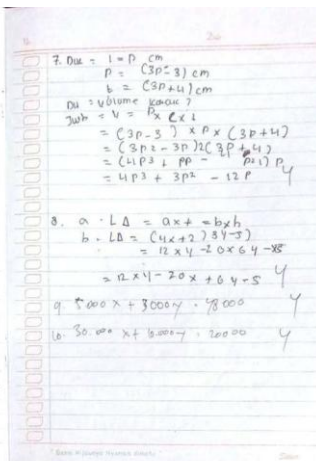 7. Dik = l = P cm
P = (3P-3) cm
t = (3P+4) cm
Dit = Volume
Jwb = V = P x l x t
= (3P-3) x P x (3P+4)
= (3P2 - 3P)2(3P+4)
= (4P3 + PP - P21) P
= 4P3 + 3P2 - 12P
8. a. LΔ = a x t = b x h
b. LΔ = (4x+2) 3y-5)
= 12xy - 20x 6y -
= 12xy - 20x + 6y - 5
9. 5000x + 3000y = 48000
10. 30.000 x + 10.000y = 20000